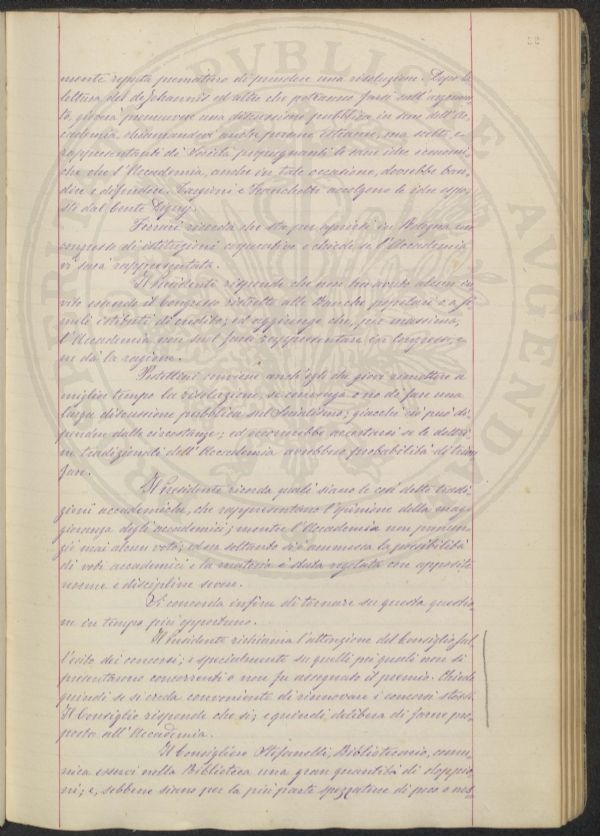 mente reputa prematuro di prendere una risoluzione. Dopo la
lettura del de Johannis ed altre che potranno farsi sull'argomen-
to, gioverà promuovere una discussione pubblica in seno dell'Ac-
cademia chiamandovi anche persone estranee, ma scelte, e
rappresentanti di Società propugnanti le sane idee economi-
che che l'Accademia, anche in tale occasione, dovrebbe ban-
dire e difendere. e Franchetti accolgono le idee espo-
ste dal Conte
Ferrari ricorda che sta per aprirsi in Bologna un
congresso di istituzioni cooperative e chiede se l'Accademia
vi sarà rappresentata.
Il Presidente risponde che non ha avuto alcun in-
vito essendo il Congresso ristretto alle Banche popolari e a si-
mili istituti di credito; ed aggiunge che, per massima,
l'Accademia non suol farsi rappresentare in Congressi, e
ne dà la ragione.
conviene anch'egli che giovi rimettere a
miglior tempo la risoluzione, se convenga o no di fare una
larga discussione pubblica sul Socialismo; giacchè ciò può di-
pendere dalle circostanze; ed occorrebbe accertarsi se le dottri-
ne tradizionali dell'Accademia avrebbero probabilità di trion-
fare.
Il Presidente ricorda quali siano le così dette tradi-
zioni accademiche, che rappresentano l'opinione della mag-
gioranza degli accademici; mentre l'Accademia non pronun-
ziò mai alcun voto; ed ora soltanto si è ammessa la possibilità
di voti accademici e la materia è stata regolata con apposite
norme e discipline severe.
Si concorda infine di tornare su questa questio-
ne in tempo più opportuno.
Il Presidente richiama l'attenzione del Consiglio sul-
l'esito dei concorsi, e specialmente su quelli pei quali non si
presentarono concorrenti o non fu assegnato il premio. Chiede
quindi se si creda conveniente di rinnovare i concorsi stessi.
Il Consiglio risponde che sì; e quindi delibera di farne pro-
posta all'Accademia.
Il Consigliere Stefanelli, Bibliotecario, comu-
nica esservi nella Biblioteca una gran quantità di doppio-
ni; e, sebbene siano per la più parte spezzature di poco o nes-